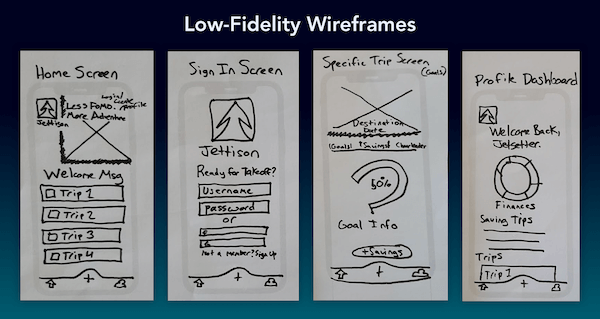 Low-Fidelity Wireframes
Home Screen
Login/
Create
Profile
Less FOMO.
More Adventure
Jettison
Welcome Msg
Trip 1
Trip 2
Trip 3
Trip 4
+
Sign In Screen
Jettison
Ready for Takeoff?
Username
Password
or
Not a member? Sign Up
+
Specific Trip Screen
(Goals)
Destination
Date
Goals
Savings
Cheerleader
50%
Goal Info
+Savings
+
Profile Dashboard
Welcome Back,
Jetsetter.
Finances
Saving Tips
Trips
Trip 1
+